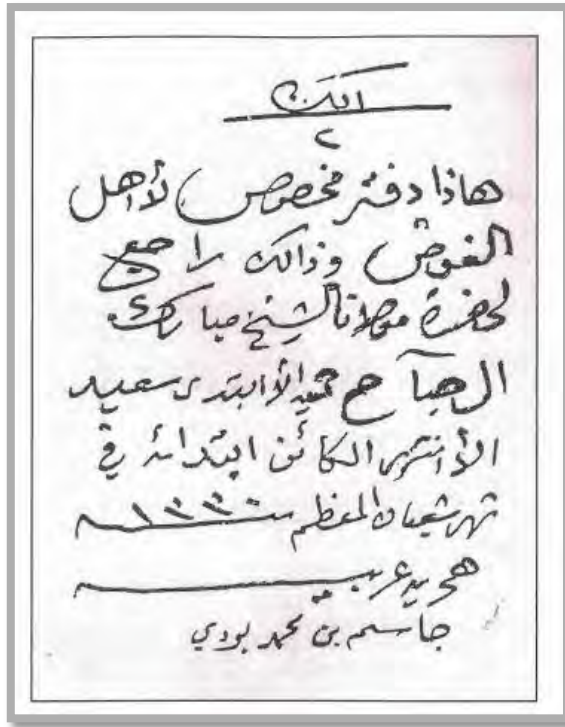 الكت
٢
هاذا دفتر مخصوص لأهل
الغوص وذالك راجع
لحضرة مولانا الشيخ مبارك
الصباح حميد الأبتدى سعيد
الأنتهى الكائن ابتدائه في
شهر شعبان المعظم سنة ١٣٣٠
هجريه عربيه
جاسم بن محمد بودي